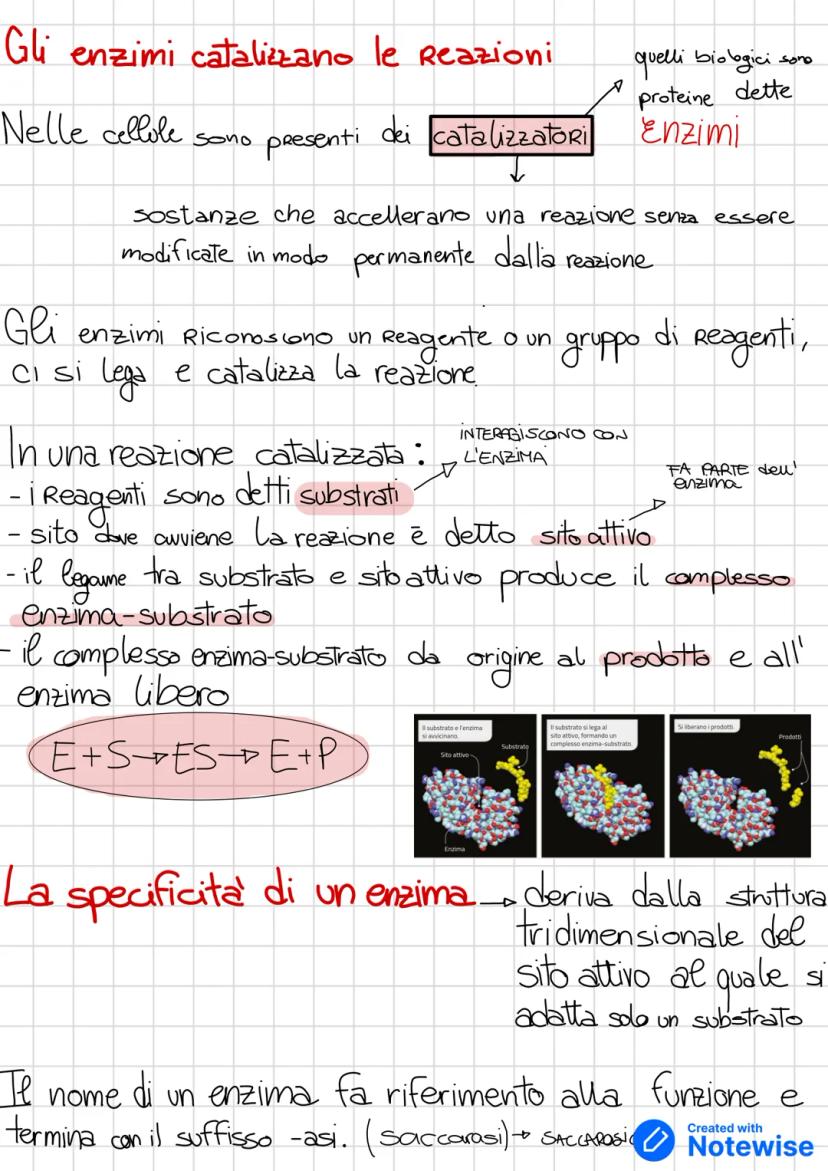 Gli enzimi catalizzano le reazioni
quelli biologici sono
proteine dette
ENZIMI
Nelle cellule sono presenti dei catalizzatori
sostanze che accellerano una reazione senza essere
modificate in modo permanente dalla reazione
Gli enzimi riconoscono un reagente o un gruppo di reagenti,
ci si lega e catalizza la reazione
In una reazione catalizzata:
INTERAGISCONO CON
L'ENZIMA
- i reagenti sono detti substrati
FA PARTE dell'
enzima
- sito dove avviene la reazione è detto sito attivo
- il legame tra substrato e sito attivo produce il complesso
enzima-substrato
- il complesso enzima-substrato da origine al prodotto e all'
enzima libero
E+S→ES→E+P
Il substrato e l'enzima
si avvicinano.
Sito attivo
Substrato
Enzima
Il substrato si lega al
sito attivo, formando un
complesso enzima-substrato.
Si liberano i prodotti.
Prodotti
La specificità di un enzima → deriva dalla struttura
tridimensionale del
sito attivo al quale si
adatta solo un substrato
Il nome di un enzima fa riferimento alla funzione e
termina con il suffisso -asi. (saccarasi) →
Created with
Notewise